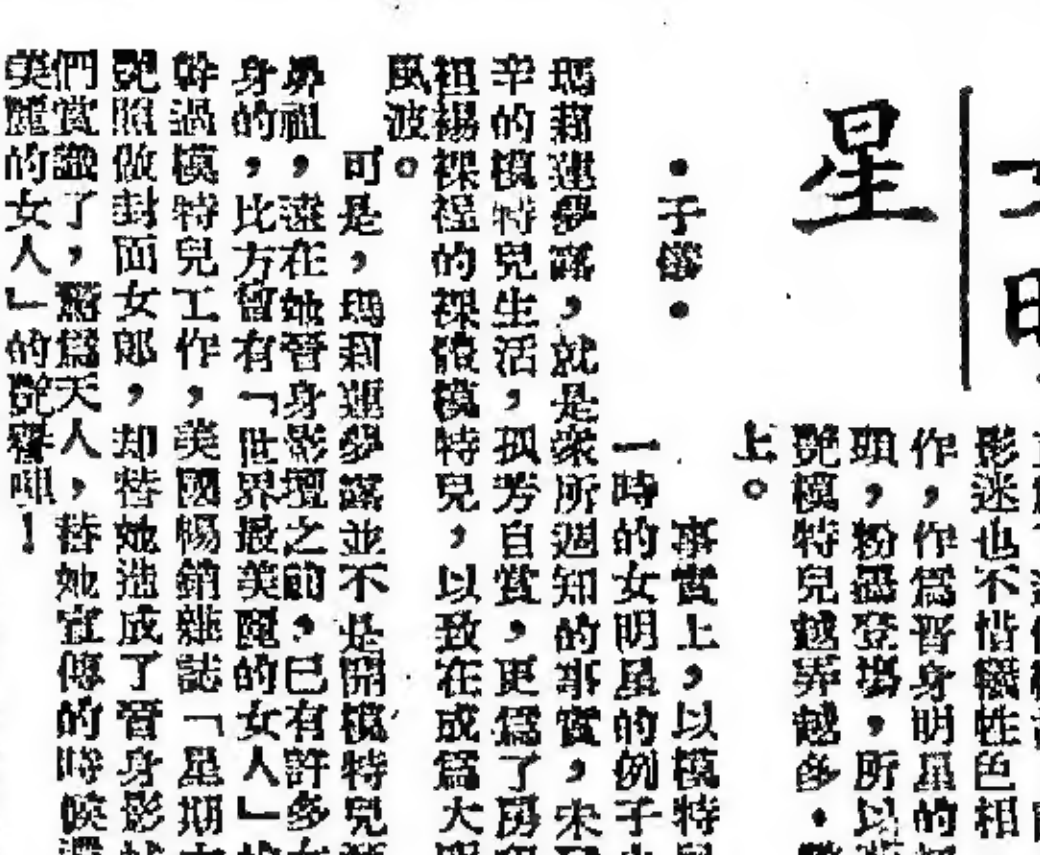 星
影迷也不惜犧牲色相
作，作爲晋身明星的
頭，粉墨登塲，所以
艷模特兒越弄越多，
上。
•子儀•
事實上，以模特
一時的女明星的例子
瑪莉蓮夢露，就是衆所週知的事實，未
辛的模特兒生活，孤芳自賞，更爲了房
袒裼裸裎的裸體模特兒，以致在成爲大
風波。
可是，瑪莉蓮夢露並不是開模特兒
鼻祖，遠在她晋身影壇之前，已有許多
身的，比方曾有「世界最美麗的女人」
幹過模特兒工作，美國暢銷雜誌「星期
艷照做封面女郎，却替她造成了晋身影
們賞識了，驚爲天人，替她宣傳的時候
美麗的女人」的艷譽呢！